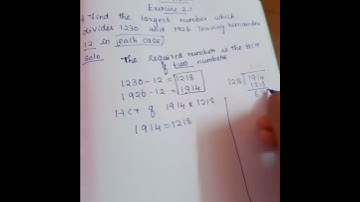 Exercise 2.1
Find the largest number which
divides 1230 and 1926 leaving remainder
12 in (each case)
Solo The required number is the HCF
of two numbers
1230-12 = 1218
1926-12 = 1914
HCF of 1914 & 1218
1914=1218
1218 1914
1218
6